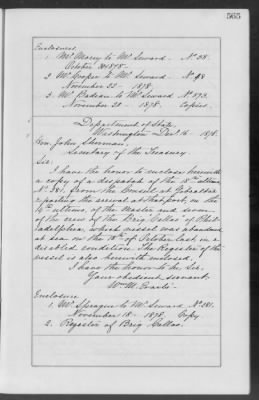 565
Enclosures.
1. Mr. Marry to Mr. Seward. No. 38.
October 21 1878.
2. Mr. Cooper to Mr. Seward No. 48
November 22 - 1878.
3. Mr. Badeau to Mr. Seward No. 573.
November 20 - 1878. Copies.
Department of State,
Washington Dec. 16 - 1878.
Hon. John Sherman,
Secretary of the Treasury.
Sir:
I have the honor to enclose herewith
a copy of a despatch of the 18th ultimo
No. 381, from the Consul at Gibraltar
reporting the arrival at that port, on the
of the Master and seven
of the crew of the Brig Callao of Phil-
adelphia, which vessel was abandoned
at sea on the 18th of October last, in a
disabled condition. The Register of the
vessel is also herewith enclosed.
I have the honor to be, Sir,
Your obedient servant,
Wm. M. Evarts.
Enclosure
1. Mr. Sprague to Mr. Seward No. 381.
November 18 - 1878. Copy.
2. Register of Brig Callao.